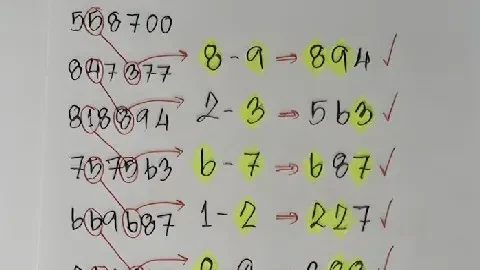 558700
847377 8-9 ⇒ 894 ✓
818894 2-3 ⇒ 563 ✓
757563 6-7 ⇒ 687 ✓
669687 1-2 ⇒ 227 ✓